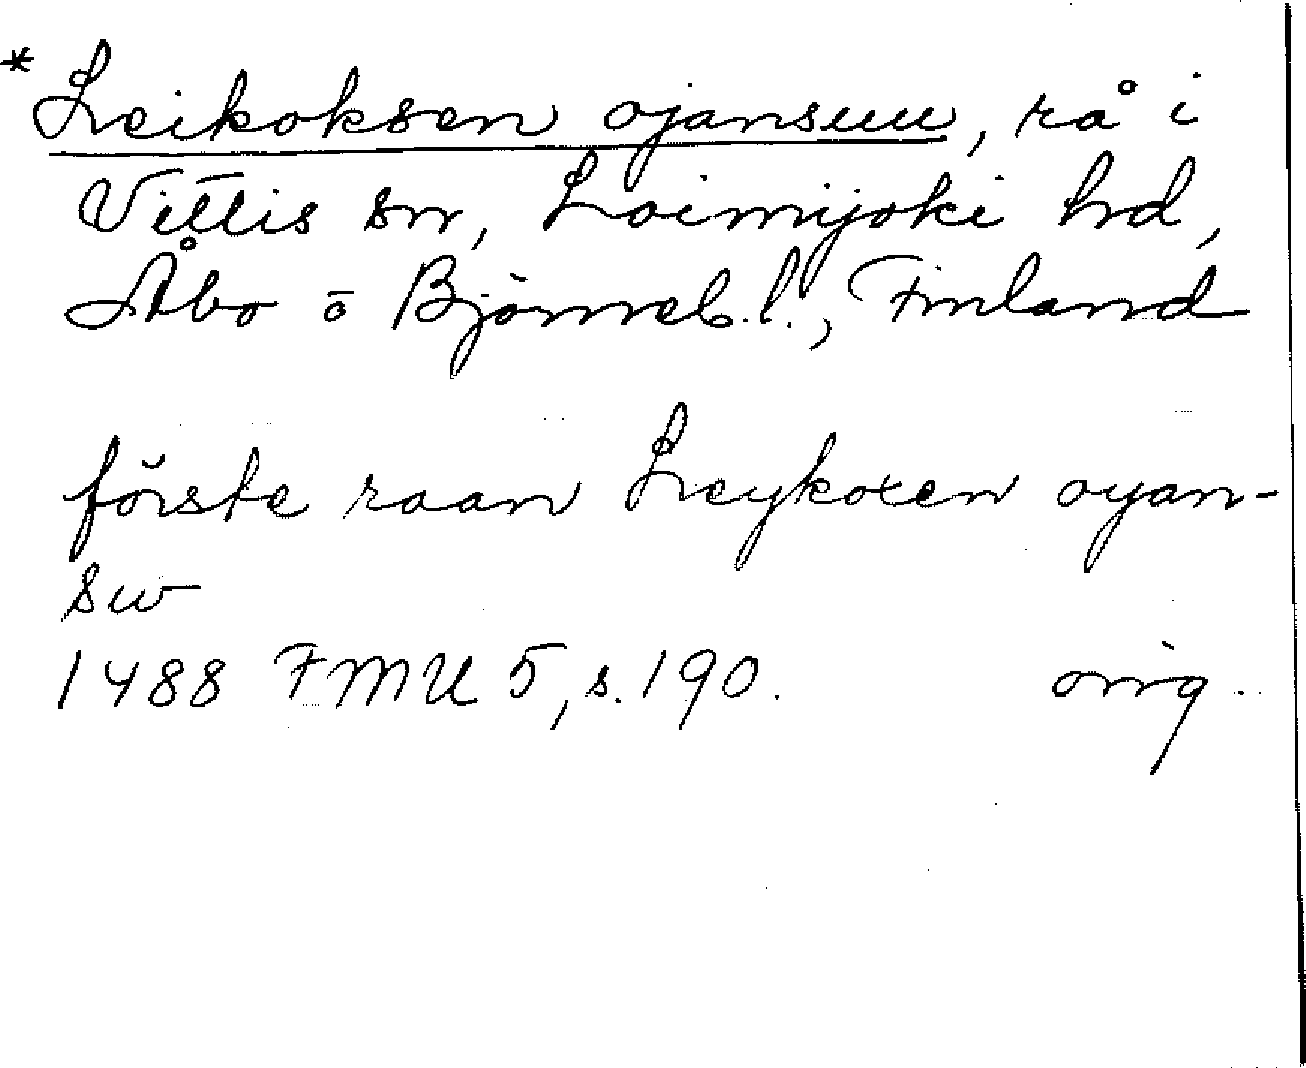 * Leikoksen ojansuu, rå i
Vittis sn, Loimijoki hd,
Åbo o Björneb.l., Finland
förste raan Leykoxen oyan-
sw
1488 FMU 5, s. 190. orig.